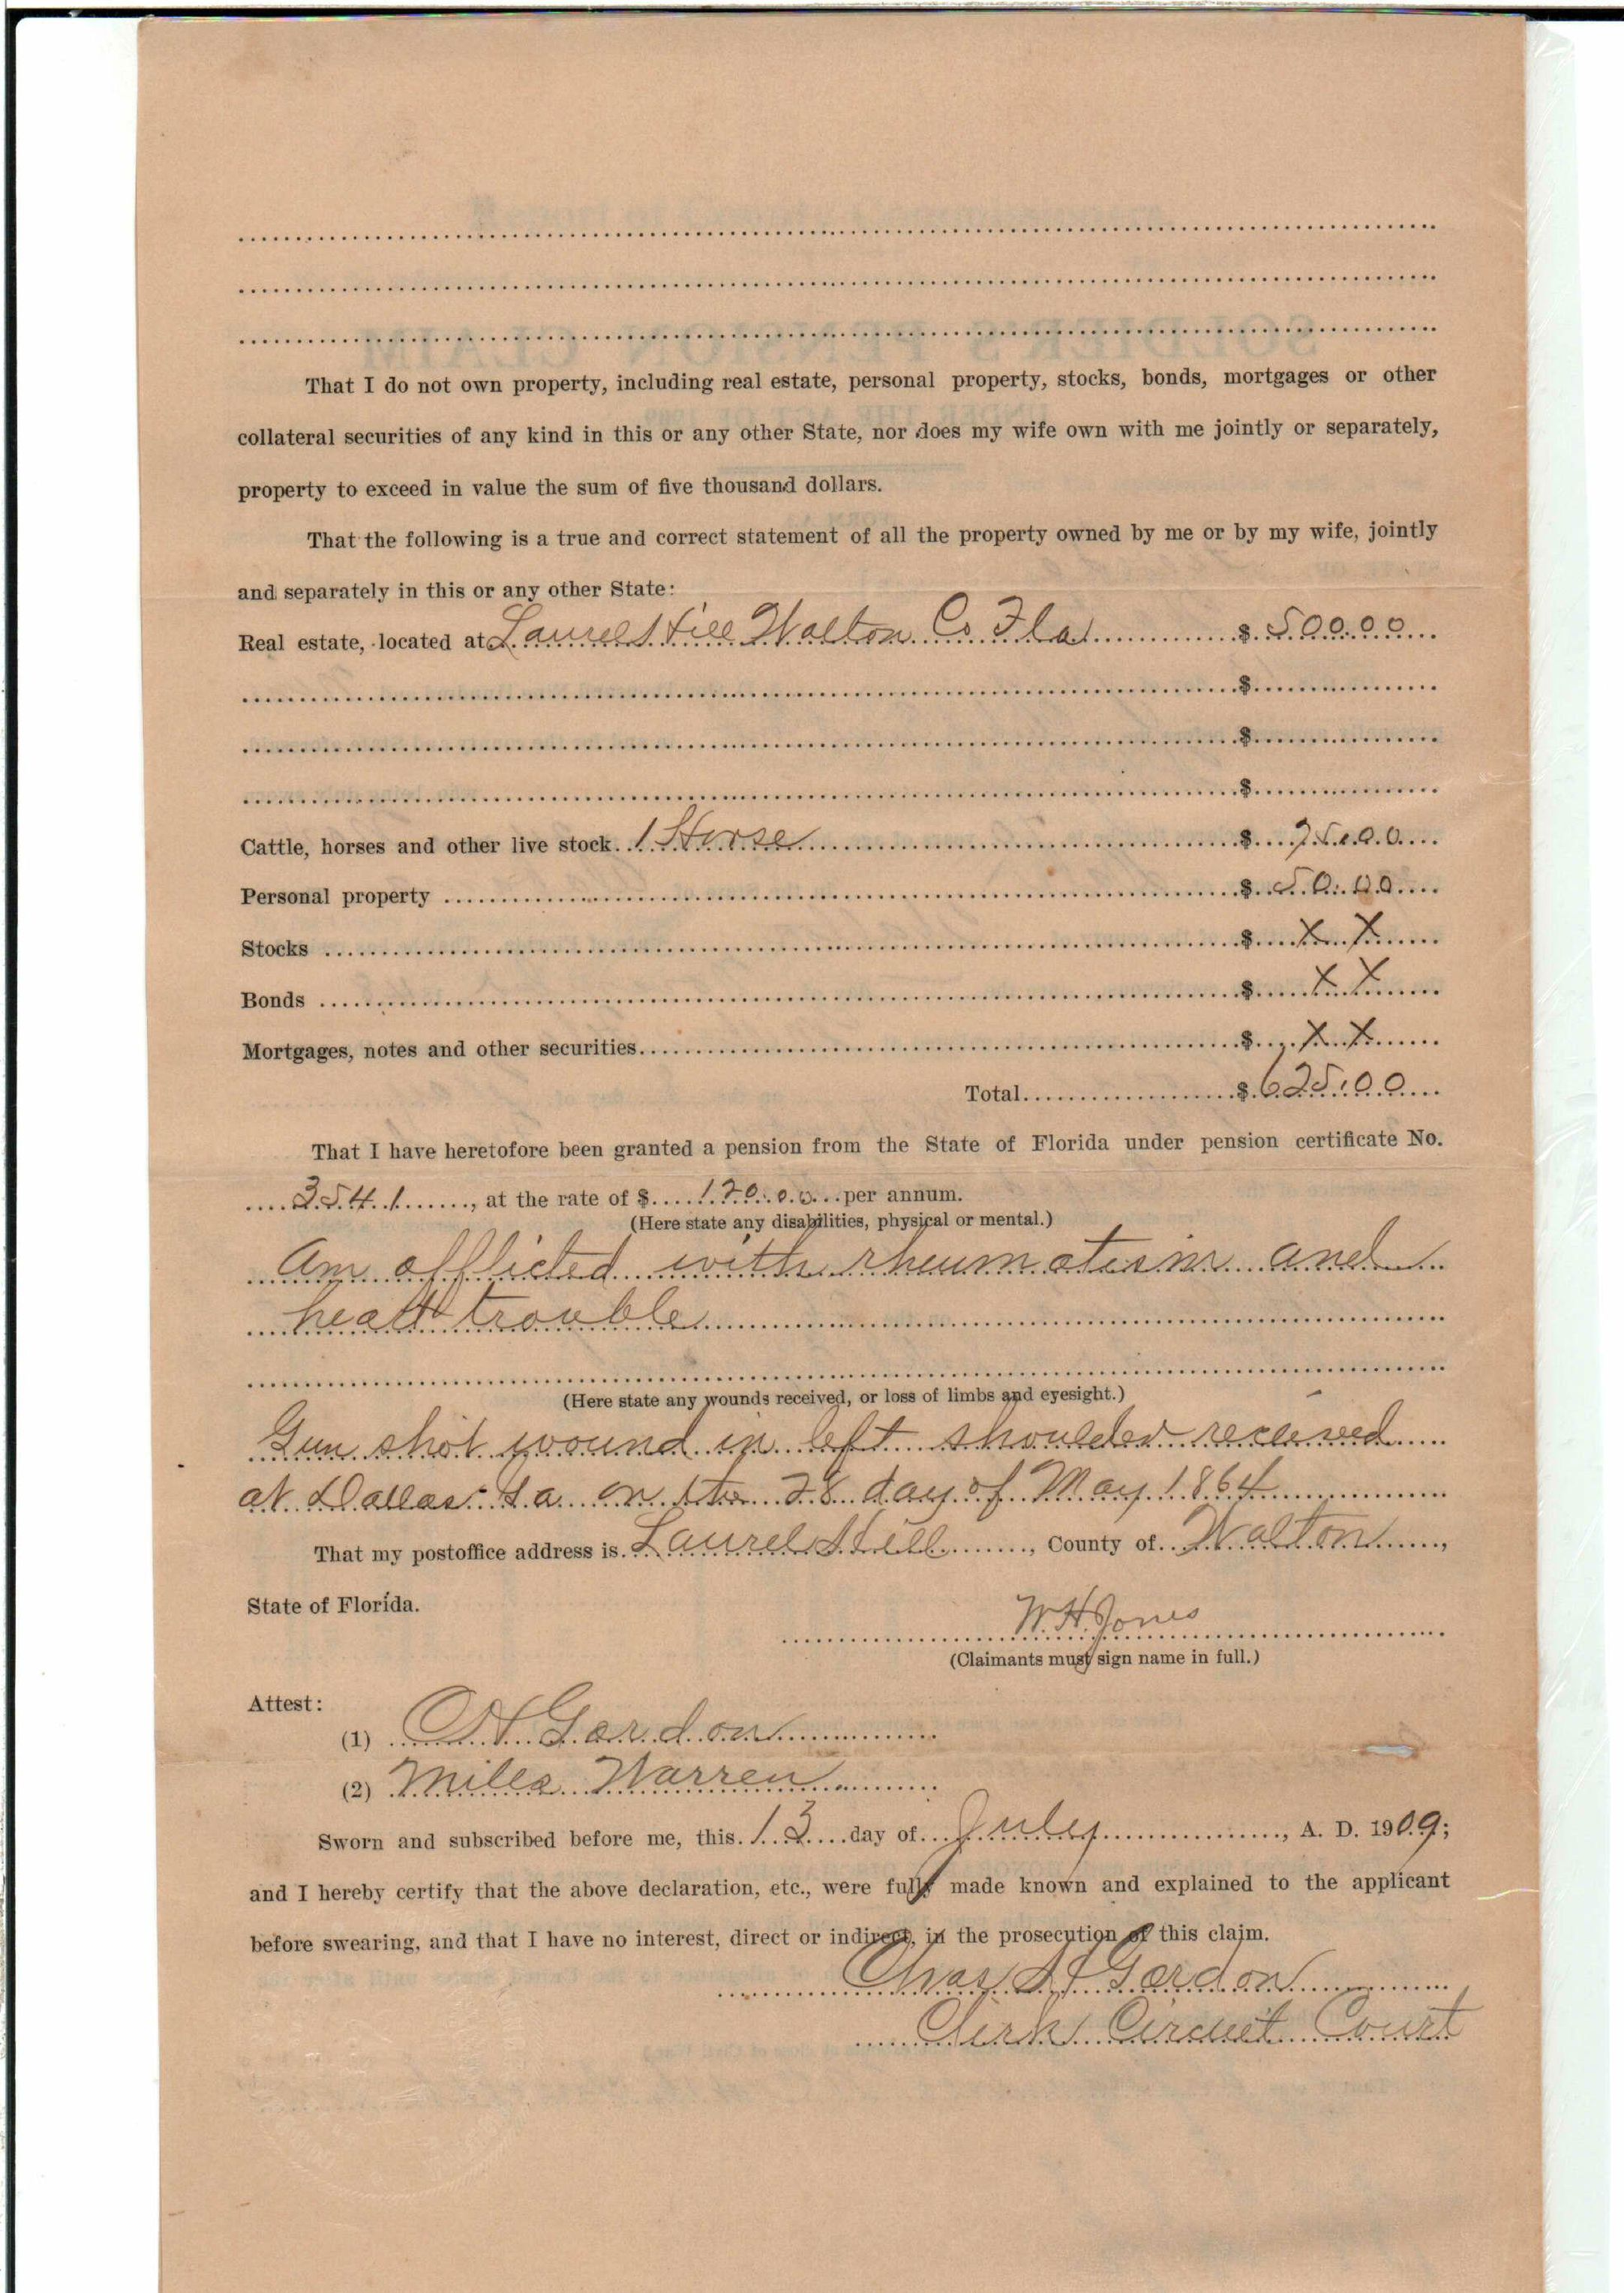 That I do not own property, including real estate, personal property, stocks, bonds, mortgages or other
collateral securities of any kind in this or any other State, nor does my wife own with me jointly or separately,
property to exceed in value the sum of five thousand dollars.
That the following is a true and correct statement of all the property owned by me or by my wife, jointly
and separately in this or any other State:
Real estate, located at Laurel Hill Walton Co Fla $ 500.00
$
$
$
Cattle, horses and other live stock. 1 Horse $ 75.00
Personal property $ 50.00
Stocks $ X X
Bonds $ X X
Mortgages, notes and other securities $ X X
Total $ 625.00
That I have heretofore been granted a pension from the State of Florida under pension certificate No.
3541, at the rate of $ 120.00 per annum.
(Here state any disabilities, physical or mental.)
Am afflicted with rheumatism and
heart trouble
(Here state any wounds received, or loss of limbs and eyesight.)
Gun shot wound in left shoulder received
at Dallas Ga on the 28 day of May 1864
That my postoffice address is Laurel Hill, County of Walton,
State of Florida.
W.H. Jones
(Claimants must sign name in full.)
Attest:
(1) C H Gordon
(2) Mills Warren
Sworn and subscribed before me, this 13 day of July, A. D. 1909;
and I hereby certify that the above declaration, etc., were fully made known and explained to the applicant
before swearing, and that I have no interest, direct or indirect, in the prosecution of this claim.
Chas H Gordon
Clerk Circuit Court